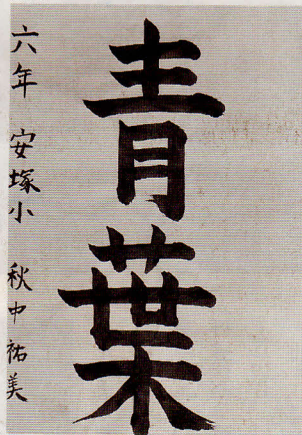 青葉
六年 安塚小 秋中祐美